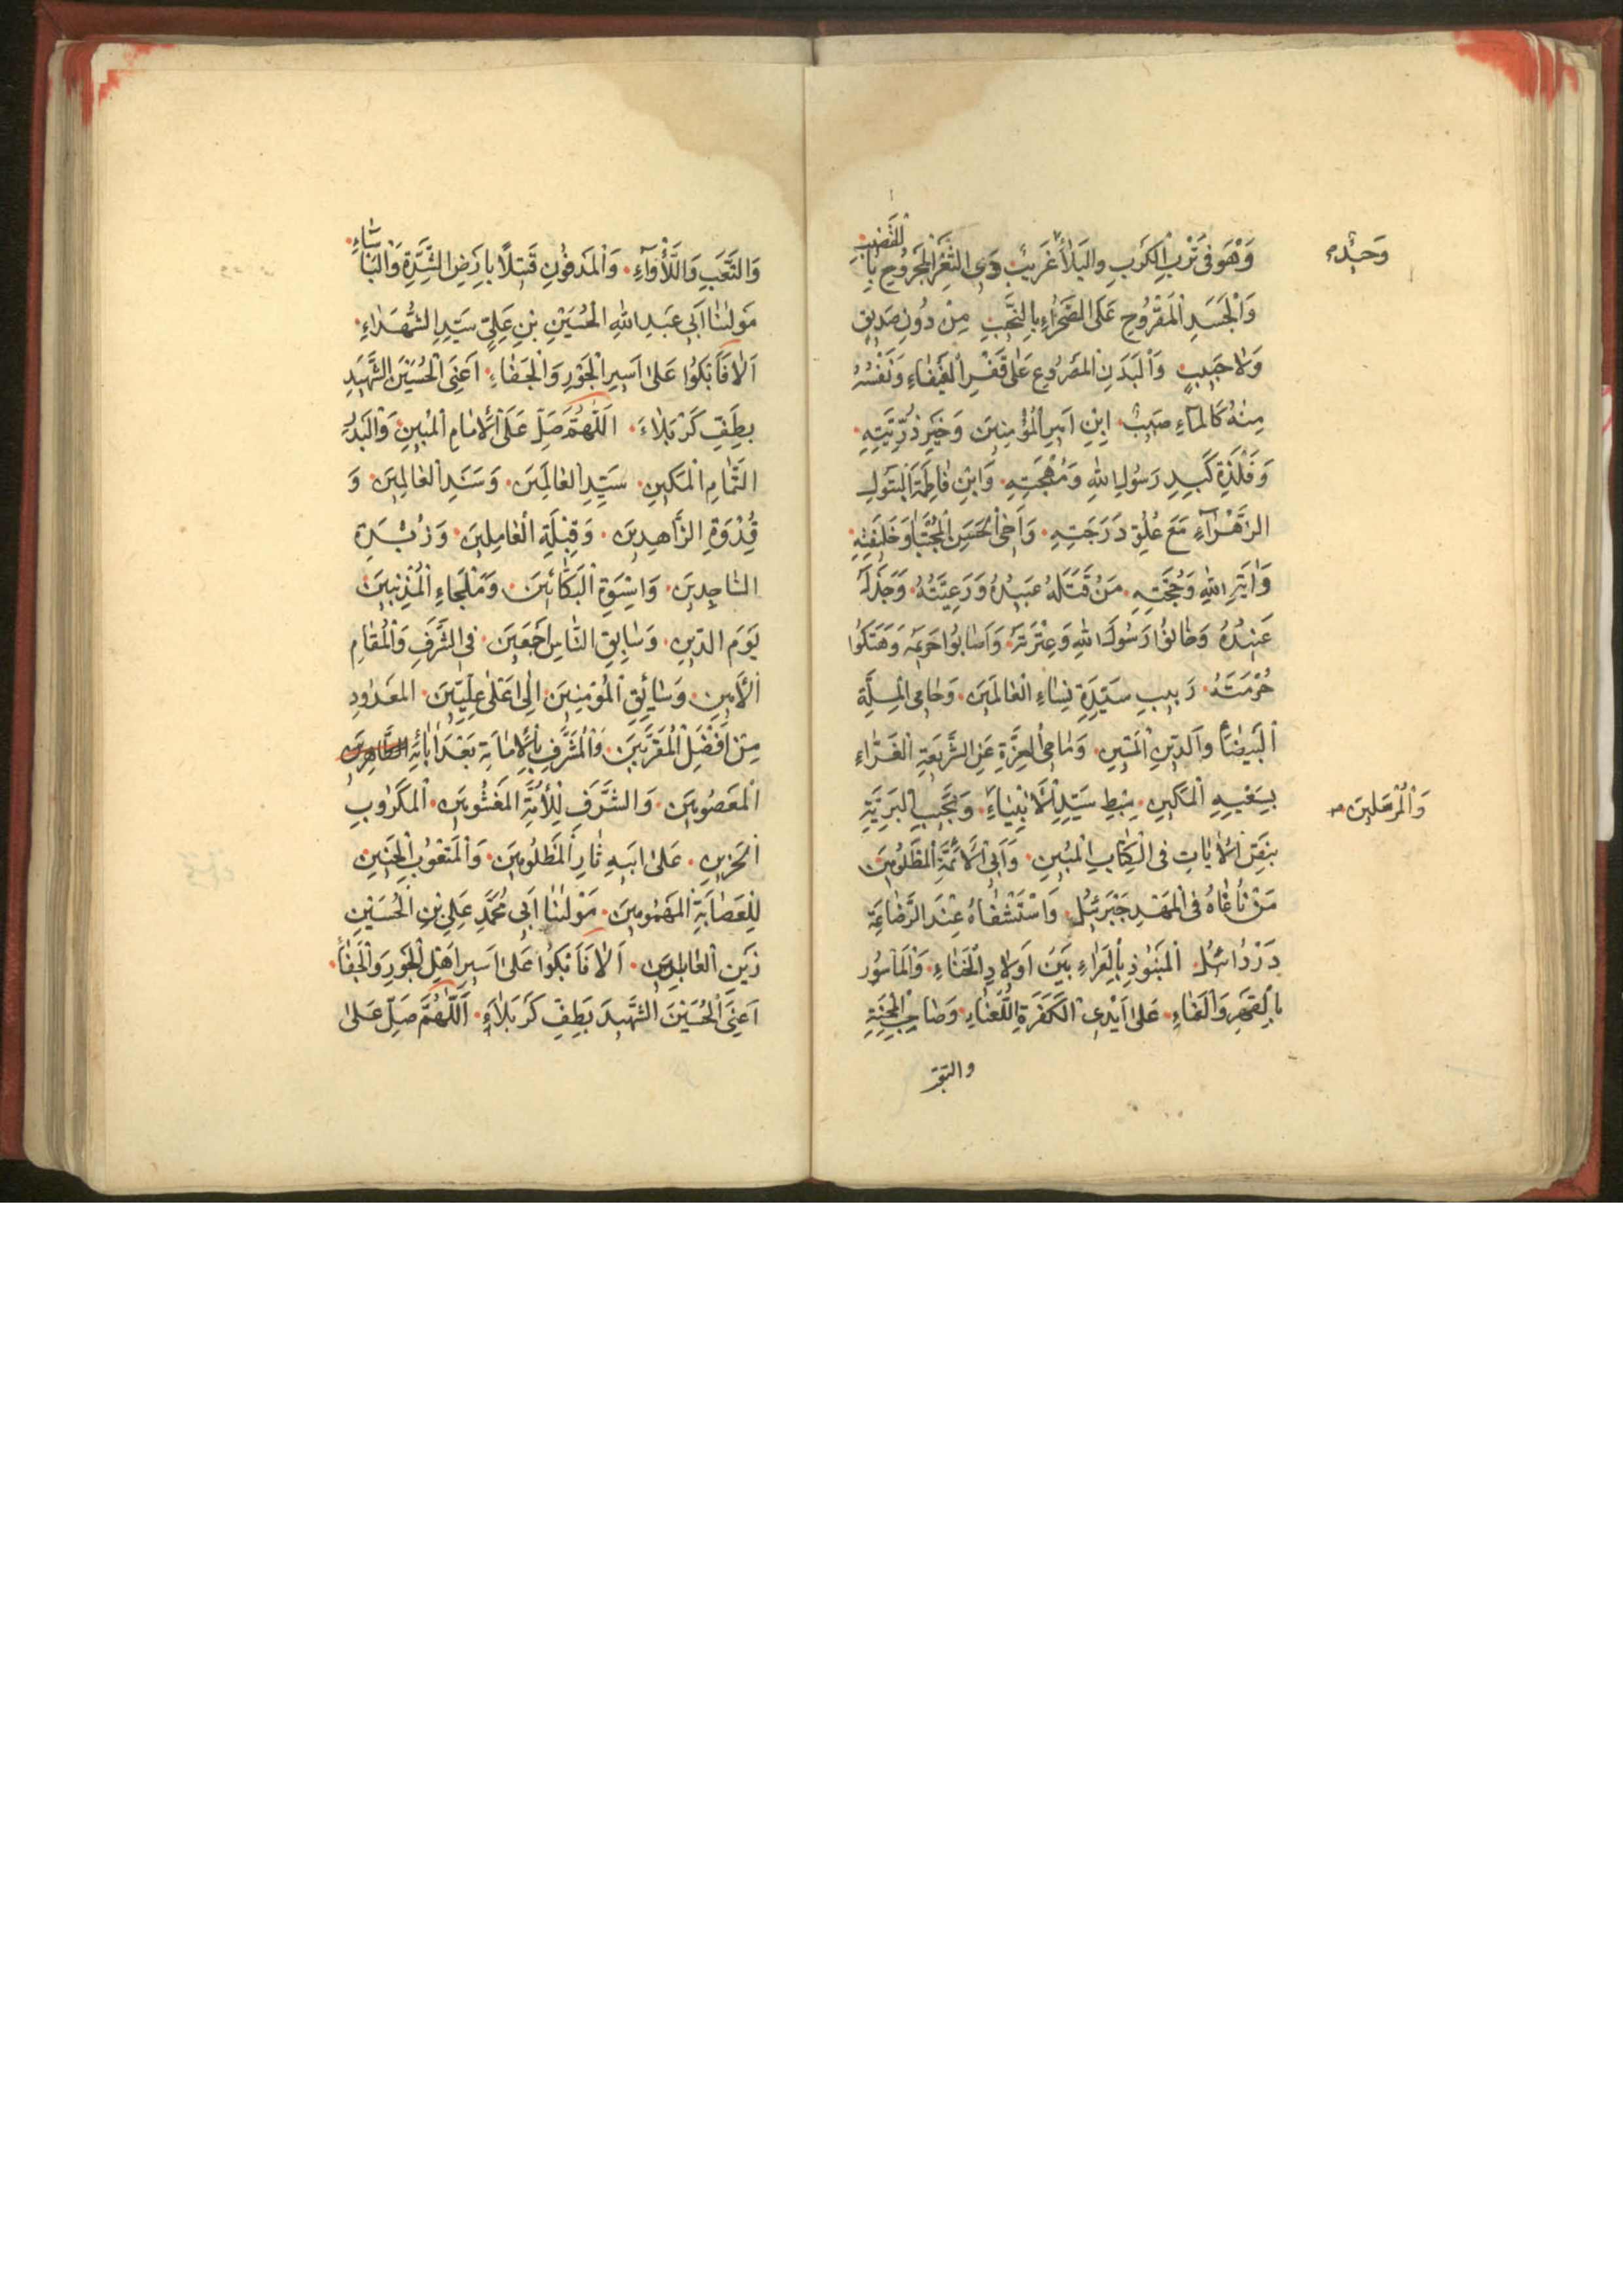 وَهُوَ فِي تُرْبِ الْكَرْبِ وَالْبَلَاءِ غَرِيبٌ وَذِي الثَّغْرِ الْمَجْرُوحِ بِالْقَضِيبِ
وَحِيدٌ
وَالْجَسَدِ الْمَقْرُوحِ عَلَى الصَّحْرَاءِ بِالنَّحِيبِ مِنْ دُونِ صَدِيقٍ
وَلَا حَبِيبٍ وَالْبَدَنِ الْمَصْرُوعِ عَلَى قَفْرِ الْفَيْفَاءِ وَنَفْسُهُ
مِنْهُ كَالْمَاءِ صَبِيبٌ ابْنِ أَمِيرِ الْمُؤْمِنِينَ وَخَيْرِ ذُرِّيَّتِهِ
وَفَلْذَةِ كَبِدِ رَسُولِ اللهِ وَمُهْجَتِهِ وَابْنِ فَاطِمَةَ الْبَتُولِ
الزَّهْرَاءِ مَعَ عُلُوِّ دَرَجَتِهِ وَأَخِي الْحَسَنِ الْمُجْتَبَا وَخَلِيفَتِهِ
وَايَةِ اللهِ وَحُجَّتِهِ مَنْ قَتَلَهُ عَبِيدُهُ وَرَعِيَّتُهُ وَجَدَّلَهُ
عَبِيدُهُ وَخَالَفُوا رَسُولَ اللهِ وَعِتْرَتَهُ وَأَصَابُوا حَرِيمَهُ وَهَتَكُوا
حُرْمَتَهُ رَبِيبِ سَيِّدَةِ نِسَاءِ الْعَالَمِينَ وَحَامِي الْمِلَّةِ
الْبَيْضَاءِ وَالدِّينِ الْمَتِينِ وَمَاحِي الْعِزَّةِ عَنِ الشَّرِيعَةِ الْغَرَّاءِ
بِسَعْيِهِ الْمَكِينِ سِبْطِ سَيِّدِ الْأَنْبِيَاءِ وَنَجِيبِ الْبَرِيَّةِ
وَالْمُرْسَلِينَ
بِنَصِّ الْاٰيَاتِ فِي الْكِتَابِ الْمُبِينِ وَأَبِي الْأَئِمَّةِ الْمَظْلُومِينَ
مَنْ نَاغَاهُ فِي الْمَهْدِ جَبْرَئِيلُ وَاسْتَشْفَاهُ عِنْدَ الرَّضَاعَةِ
دَرْدَائِيلُ الْمَنْبُوذِ بِالْعَرَاءِ بَيْنَ أَوْلَادِ الْخَنَاءِ وَالْمَأْسُورِ
بِالْقَهْرِ وَالْعَنَاءِ عَلَى أَيْدِي الْكَفَرَةِ اللُّعَنَاءِ وَصَاحِبِ الْمِحْنَةِ
والتعب
وَالتَّعَبِ وَاللَّأْوَاءِ وَالْمَدْفُونِ قَتِيلًا بِأَرْضِ الشِّدَّةِ وَالْبَأْسَاءِ
مَوْلَانَا أَبِي عَبْدِ اللهِ الْحُسَيْنِ بْنِ عَلِيٍّ سَيِّدِ الشُّهَدَاءِ
أَلَا فَابْكُوا عَلَى أَسِيرِ الْجَوْرِ وَالْجَفَاءِ أَعْنِي الْحُسَيْنَ الشَّهِيدِ
بِطَفِّ كَرْبَلَاءَ اَللّٰهُمَّ صَلِّ عَلَى الْاِمَامِ الْمُبِينِ وَالْبَدْرِ
التَّمَامِ الْمَكِينِ سَيِّدِ الْعَالَمِينَ وَسَنَدِ الْعَالِمِينَ وَ
قُدْوَةِ الزَّاهِدِينَ وَقِبْلَةِ الْعَامِلِينَ وَزُبْدَةِ
السَّاجِدِينَ وَاسْوَةِ الْبَكَّائِينَ وَمَلْجَاءِ الْمُذْنِبِينَ
يَوْمَ الدِّينِ وَسَابِقِ النَّاسِ أَجْمَعِينَ فِي الشَّرَفِ وَالْمَقَامِ
الْأَمِينِ وَسَائِقِ الْمُؤْمِنِينَ إِلَى أَعْلَى عِلِّيِّينَ الْمَعْدُودِ
مِنْ أَفْضَلِ الْمُقَرَّبِينَ وَالْمُشَرَّفِ بِالْإِمَامَةِ بَعْدَ اٰبَائِهِ الطَّاهِرِينَ
الْمَعْصُومِينَ وَالشَّرَفِ لِلْأُمَّةِ الْمَغْشُومِينَ الْمَكْرُوبِ
الْحَزِينِ عَلَى أَبِيهِ ثَارِ الْمَظْلُومِينَ وَالْمَتْعُوبِ الْحَنِينِ
لِلْعِصَابَةِ الْمَهْمُومِينَ مَوْلَانَا أَبِي مُحَمَّدٍ عَلِيِّ بْنِ الْحُسَيْنِ
زَيْنِ الْعَابِدِينَ أَلَا فَابْكُوا عَلَى أَسِيرِ أَهْلِ الْجَوْرِ وَالْجَفَاءِ
أَعْنِي الْحُسَيْنَ الشَّهِيدَ بِطَفِّ كَرْبَلَاءِ اَللّٰهُمَّ صَلِّ عَلَى